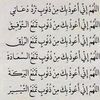 اللهم إني أعوذ بك من ذنوب ترد دعائي
اللهم إني أعوذ بك من ذنوب تمنع التوفيق
اللهم إني أعوذ بك من ذنوب تمنع الرزق
اللهم إني أعوذ بك من ذنوب تمنع السعادة
اللهم إني أعوذ بك من ذنوب تمنع البركة
اللهم إني أعوذ بك من ذنوب تمنع التيسير